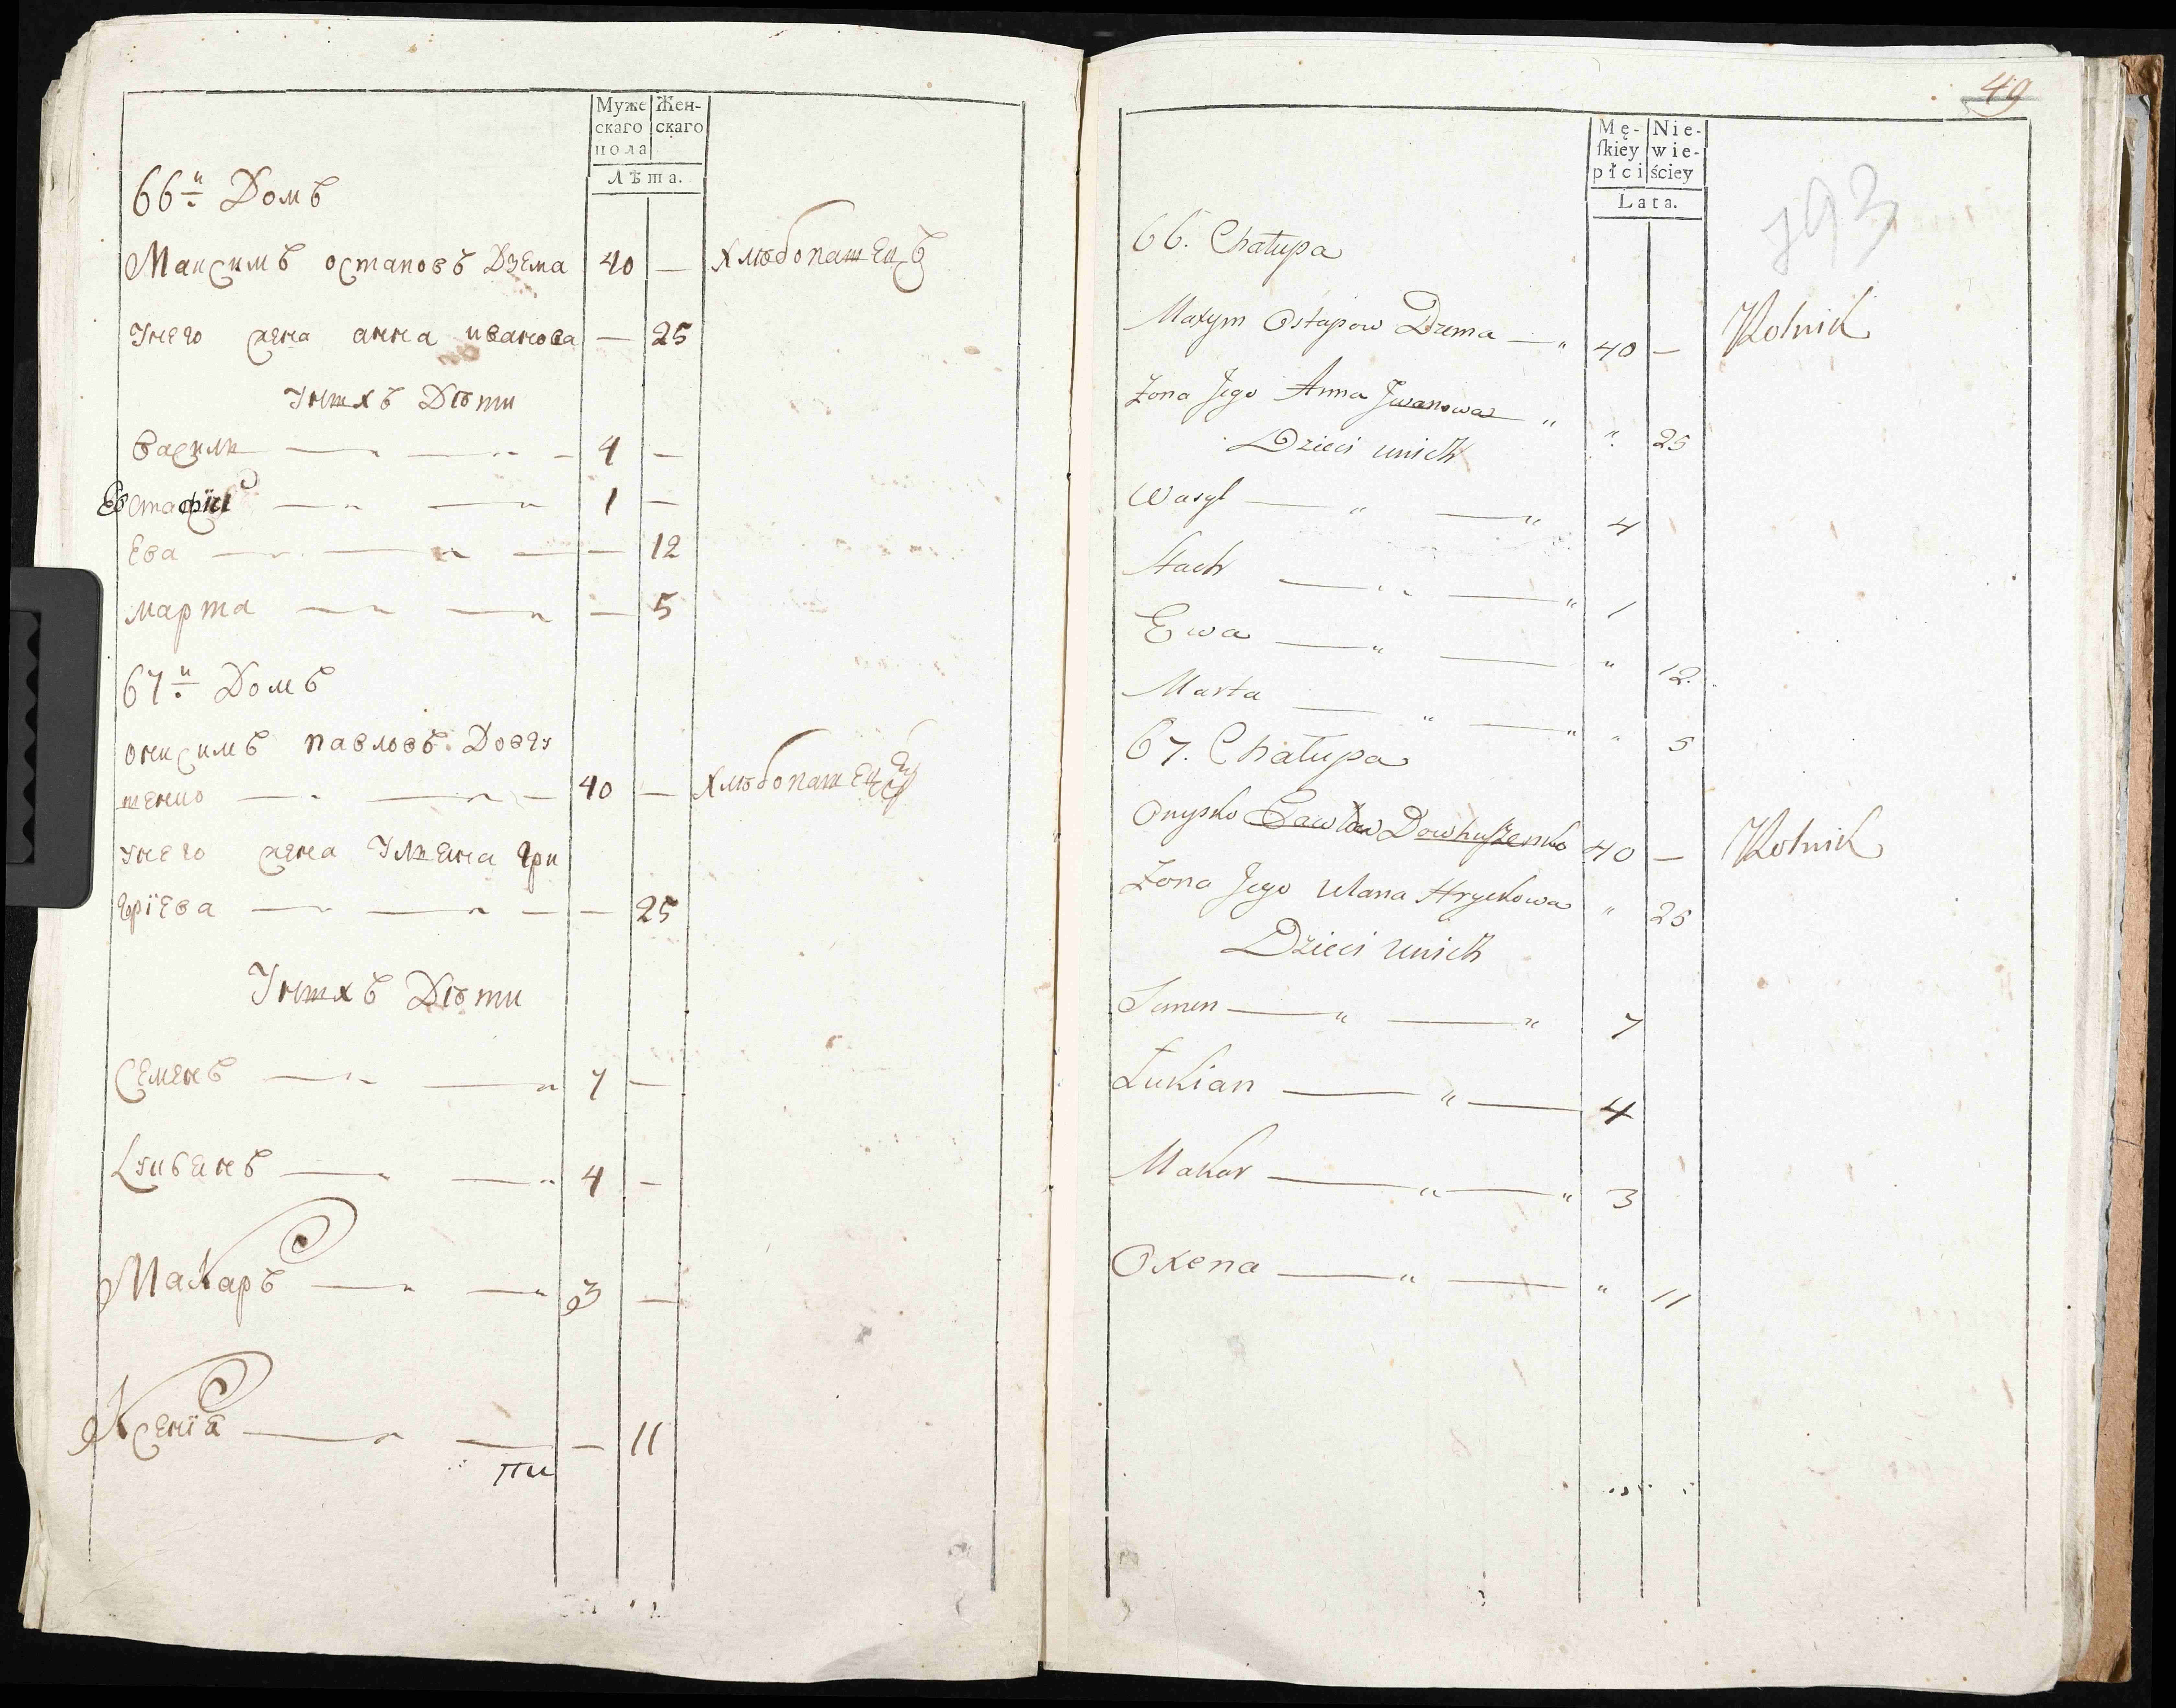 Муже Жен-
скаго скаго
пола
Лѣта.
66й Домъ
Максимъ остаповъ Дзема 40 — хлѣбопашецъ
Унего жена анна иванова — 25
Унихъ Дѣти
Васили — 4 —
Евстафїй — 1 —
Ева — — 12
марта — — 5
67й Домъ
онисимъ павловъ Довгу
шенко — 40 — хлѣбопашецъ
унего жена Ульяна гри
горїева — — 25
Унихъ Дѣти
Семенъ — 7 —
Лукьянъ — 4 —
Макаръ — 3 —
Ксенїя — — 11
пи
49
193
Mę- Nie-
ſkiey wie-
płci ściey
Lata.
66. Chałupa
Maxym Ostapow Dzema — 40 — Rolnik
Żona Jego Anna Jwanowa " " 25
Dzieci unich
Wasyl — " — " 4
Stach — " — " 1
Ewa — " — " 12.
Marta — " — " " 5
67. Chałupa
Onysko Pawłow Dowhuszenko 40 — Rolnik
Żona Jego Ulana Hryckowa " 25
Dzieci unich
Semen — " — " 7
Łukian — " — 4
Makar — " — " 3
Oxena — " — " 11